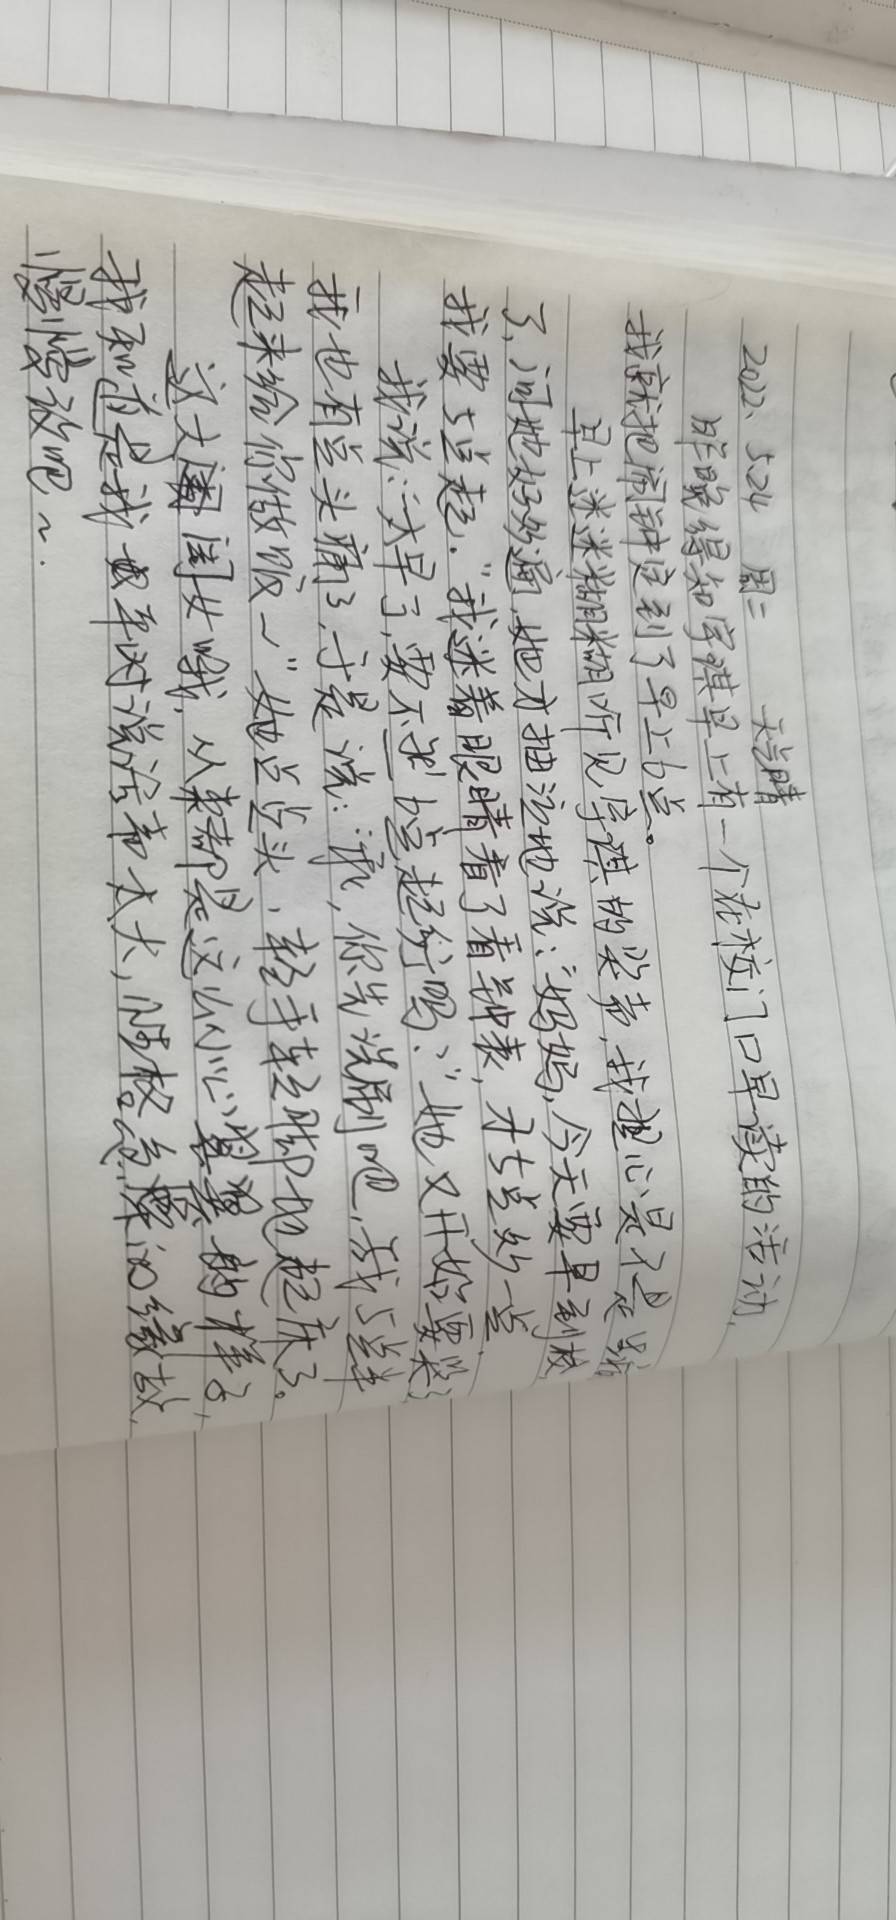 2022. 5.24 周二 天气晴
昨晚得知字琪早上有一个在校门口早读的活动,
我就把闹钟定到了早上6点。
早上迷迷糊糊听见字琪的哭声,我担心是不是
了,问她好多遍,她才抽泣地说:"妈妈,今天要早到校
我要5点起."我迷着眼睛看了看钟表,才5点多一点.
我说:"太早了,要不 6点起行吗?"她又开始要哭
我也有点头痛了,于是说:"乖,你先洗刷吧,我5点半
起来给你做饭~"她点点头、轻手轻脚地起床了。
这大闺女哦,从来都是这么小心翼翼的样子,
我知道是我 年时说话声太大,性格急躁的缘故,
慢慢改吧~.